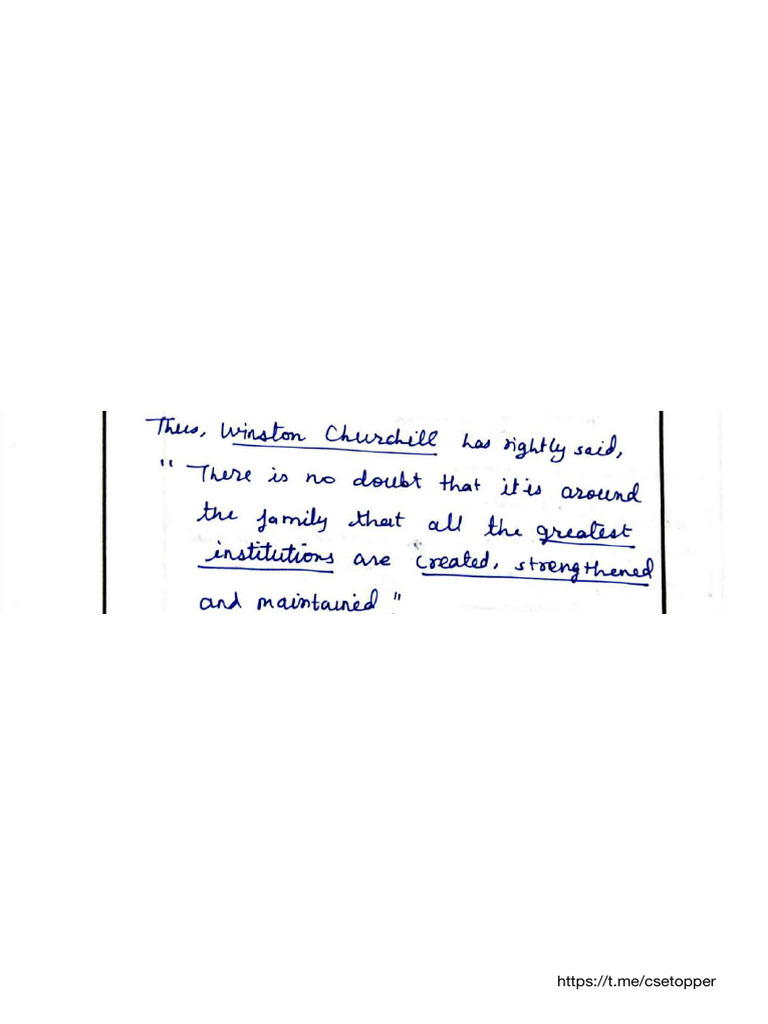 Thus, Winston Churchill has rightly said,
" There is no doubt that it is around
the family that all the greatest
institutions are created, strengthened
and maintained "
https://t.me/csetopper